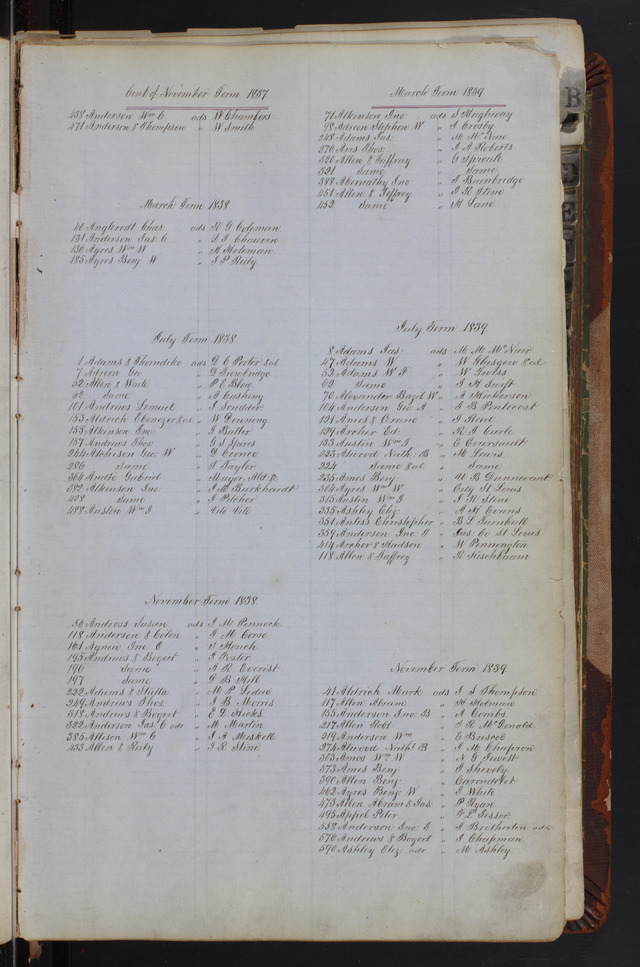 Cont. of November Term 1837
458 Anderson Wm C ads W Chambers
471 Anderson & Thompson " W Smith
March Term 1838
40 Anglerodt Chas. ads R G Coleman
131 Anderson Jas C " L T Chauvin
136 Ayres Wm W " H Holeman
185 Ayres Benj W " J P Reily
July Term 1838
1 Adams & Thorndike ads D C Porter & al
7 Adreon Geo " D Trowbridge
52 Allen & Waite " P E Blow
62 Same " A Cushing
101 Andrews Lemuel " I Scudder
153 Aldrich Ebenezer & al " W Downing
155 Atkinson Jno " J Butler
157 Andrews Thos " G J Spires
244 Atchison Geo. W " D Coonce
286 Same " J Taylor
364 André Gabriel " Mayor, Ald. &c
382 Atkinson Jno " J A Burkhardt
408 Same " J Pilcher
488 Austin Wm I " Vito Vite
November Term 1838
56 Andross Susan ads J M Pennock
118 Anderson & Colon " J M Corse
161 Agnew Jno C " S Hough
195 Andrews & Bogert " J Foster
196 Same " A R Everist
197 Same " G B Hill
222 Adams & Stilla " M P Leduc
249 Andrews Thos. " J B Morris
318 Andrews & Bogert " E L Hicks
322 Anderson Jas C adr " M Martin
385 Allison Wm C " J A Meskell
433 Allen & Reily " J R Stine
March Term 1839
71 Atkinson Jno ads S Hughway
98 Adreon Stephen W " J Crosby
248 Adams Jas. " M McNair
276 Avis Thos. " J A Roberts
320 Allen & Jaffray " G Sproule
321 Same " Same
388 Abernathy Jno " J Bainbridge
451 Allen & Jeffrey " J R Stine
452 Same " H Lane
July Term 1839
8 Adams Jas. ads M M McNair
47 Adams W " W Glasgow & al
52 Adams W F " W Weiss
62 Same " J H Swift
70 Alexander Bazil W " A Hickerson
104 Anderson Geo A " J B Pentecost
121 Ames & Crane " J Reed
129 Archer Ed. " R J Curle
133 Austin Wm I " E Coursault
223 Atwood Nath. B " M Lewis
224 Same & al " Same
235 Ames Benj " W B Dunnevant
304 Ayres Wm W " City St Louis
315 Austin Wm I " J R Stine
335 Ashley Eliz. " A H Evans
351 Antiss Christopher " B L Turnbull
359 Anderson Jno. J " Ins: Co St Louis
414 Archer & Hudson " W Pennington
118 Allen & Jaffrey " R Kischbaum
November Term 1839.
41 Aldrich Mark ads J S Thompson
117 Allen Abram " H Holman
155 Anderson Jno. B " A Combs
217 Allen Robt " J R McDonald
219 Anderson Wm " E Briscoe
274 Atwood Nathl B " J M Chapron
303 Amos Wm W " N G Jewett
373 Ames Benj. " J Shively
390 Allen Benj. " Carondelet
462 Ayres Benj. W " J White
473 Allen Abram & Jas " P Ryan
495 Appel Peter " F L Tesser
558 Anderson Jno. C " J Brotherton adr
576 Andrews & Bogert " J Chapman
590 Ashley Eliz adr " M Ashley
B